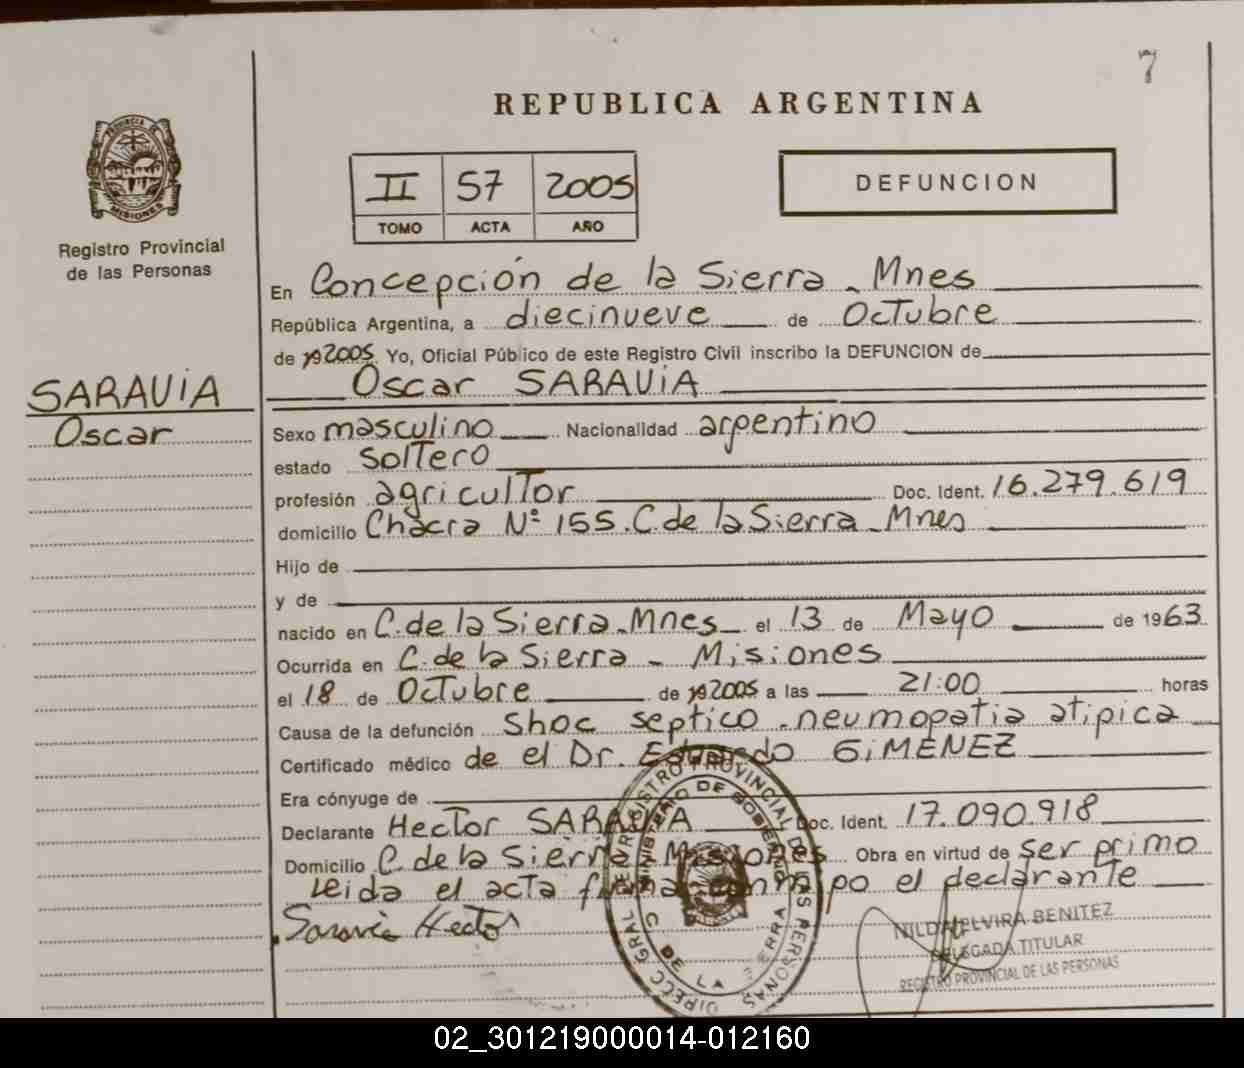 7
REPUBLICA ARGENTINA
PROVINCIA DE MISIONES
II 57 2005
TOMO ACTA AÑO
DEFUNCION
Registro Provincial
de las Personas
En Concepción de la Sierra - Mnes
República Argentina, a diecinueve de Octubre
de 192005 Yo, Oficial Público de este Registro Civil inscribo la DEFUNCION de
Oscar SARAVIA
SARAVIA
Oscar
Sexo masculino Nacionalidad argentino
estado Soltero
profesión agricultor Doc. Ident. 16.279.619
domicilio Chacra Nº 155. C. de la Sierra - Mnes
Hijo de
y de
nacido en C. de la Sierra - Mnes el 13 de Mayo de 1963
Ocurrida en C. de la Sierra - Misiones
el 18 de Octubre de 192005 a las 21:00 horas
Causa de la defunción Shoc septico - neumopatia atipica
Certificado médico de el Dr. Eduardo GIMENEZ
Era cónyuge de
Declarante Hector SARAVIA Doc. Ident. 17.090.918
Domicilio C. de la Sierra - Misiones Obra en virtud de ser primo
Leida el acta firma conmigo el declarante
Saravia Hector
NILDA ELVIRA BENITEZ
DELEGADA TITULAR
REGISTRO PROVINCIAL DE LAS PERSONAS
DIRECC. GRAL. DE REGISTRO PROVINCIAL DE LAS PERSONAS
MINISTERIO DE GOBIERNO
C. DE LA SIERRA
02_301219000014-012160